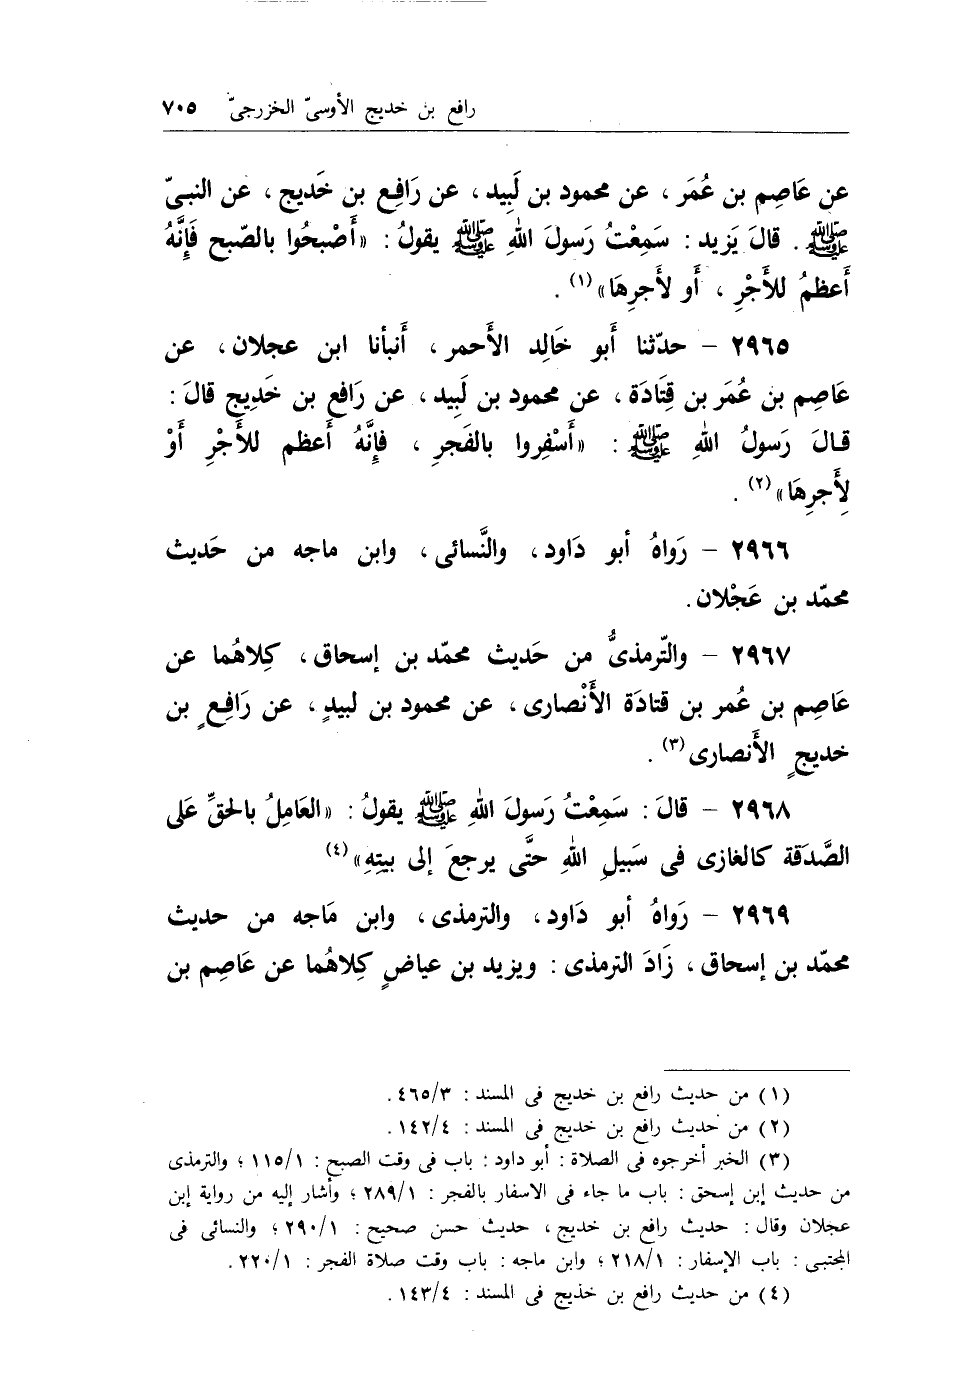 رافع بن خديج الأوسىّ الخزرجىّ ٧٠٥
عن عَاصِم بن عُمَر ، عن محمود بن لَبِيد ، عن رَافِع بن خَديج ، عن النبىّ
ﷺ . قالَ يَزيد : سَمِعْتُ رَسولَ اللهِ ﷺ يقولُ : «أَصْبِحُوا بالصّبح فَإِنَّهُ
أَعظمُ للأَجْرِ ، أَو لأَجرِهَا» (١) .
٢٩٦٥ – حدّثنا أَبو خَالِد الأَحمر ، أَنبأنا ابن عجلان ، عن
عَاصِم بن عُمَر بن قِتَادَة ، عن محمود بن لَبِيد ، عن رَافع بن خَدِيج قالَ :
قـالَ رَسولُ اللهِ ﷺ : «أَسْفِروا بالفَجرِ ، فإنَّهُ أَعظم للأَجْرِ أَوْ
لِأَجرِهَا» (٢) .
٢٩٦٦ – رَواهُ أبو دَاود ، والنَّسائى ، وابن ماجه من حَديث
محمّد بن عَجْلان .
٢٩٦٧ – والتّرمذىُّ من حَديث محمّد بن إسحاق ، كِلاهُما عن
عَاصِم بن عُمر بن قتادَة الأَنْصارى ، عن محمود بن لبيدٍ ، عن رَافِعٍ بن
خديجٍ الأَنصارى (٣) .
٢٩٦٨ – قالَ : سَمِعْتُ رَسولَ اللهِ ﷺ يقولُ : «العَامِلُ بالحَقِّ عَلى
الصَّدَقة كالغازى فى سَبيلِ اللهِ حتَّى يرجعَ إلى بيتِهِ» (٤)
٢٩٦٩ – رَواهُ أبو دَاود ، والترمذى ، وابن مَاجه من حديث
محمّد بن إسحاق ، زَادَ الترمذى : ويزيد بن عياضٍ كِلاهُما عن عَاصِم بن
(١) من حديث رافع بن خديج فى المسند : ٤٦٥/٣ .
(٢) من حديث رافع بن خديج فى المسند : ١٤٢/٤ .
(٣) الخبر أخرجوه فى الصلاة : أبو داود : باب فى وقت الصبح : ١١٥/١ ؛ والترمذى
من حديث إبن إسحق : باب ما جاء فى الاسفار بالفجر : ٢٨٩/١ ؛ وأشار إليه من رواية إبن
عجلان وقال : حديث رافع بن خديج ، حديث حسن صحيح : ٢٩٠/١ ؛ والنسائى فى
المجتبى : باب الإسفار : ٢١٨/١ ؛ وابن ماجه : باب وقت صلاة الفجر : ٢٢٠/١ .
(٤) من حديث رافع بن خذيج فى المسند : ١٤٣/٤ .